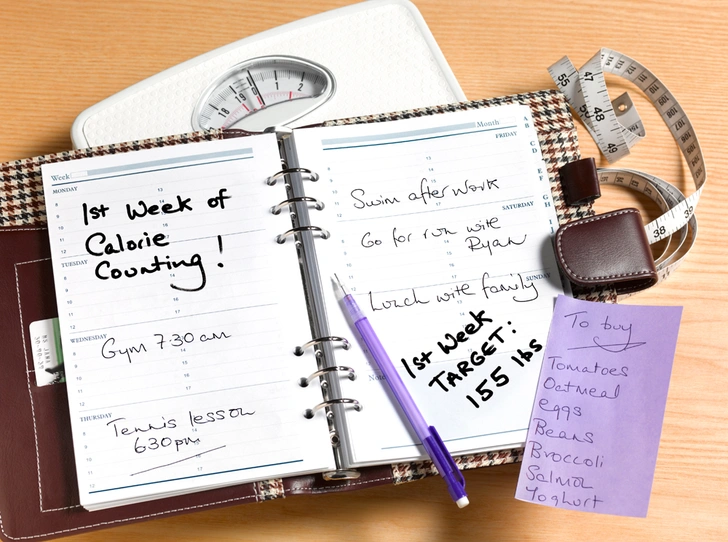 Week
MONDAY
1st Week of
Calorie
Counting!
TUESDAY
WEDNESDAY
Gym 7.30 am
THURSDAY
Tennis lesson
630pm
Month
FRIDAY
Swim after work
SATURDAY
Go for run with
Ryan
SUNDAY
Lunch with family
1st Week
TARGET:
155 lbs
Notes
To buy
Tomatoes
Oatmeal
eggs
Beans
Broccoli
Salmon
Yoghurt
A
B
C
D
E
F
G
18
19
0
1
2
55
47
48
49
38